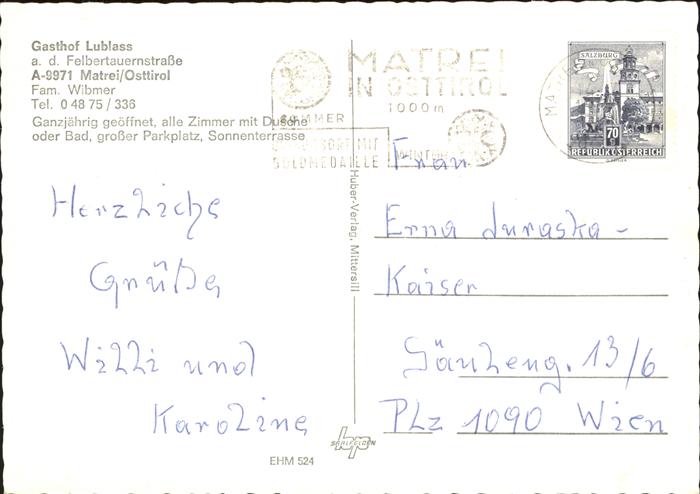 Gasthof Lublass
a. d. Felbertauernstraße
A-9971 Matrei/Osttirol
Fam. Wibmer
Tel. 0 48 75 / 336
Ganzjährig geöffnet, alle Zimmer mit Dusche
oder Bad, großer Parkplatz, Sonnenterrasse
MATREI
IN OSTTIROL
1000 m
SOMMER
MIT
GOLDMEDAILLE
SALZBURG
70
REPUBLIK ÖSTERREICH
Herzliche
Grüße
Willi und
Karoline
Huber-Verlag, Mittersill
Frau
Erna Juraska-
Kaiser
13/6
PLZ 1090 Wien
SAALFELDEN
EHM 524